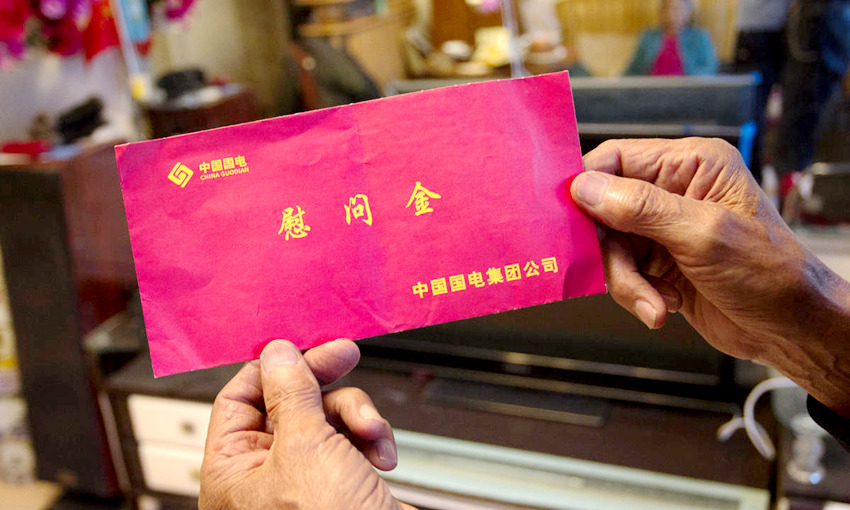 中国国电
CHINA GUODIAN
慰问金
中国国电集团公司